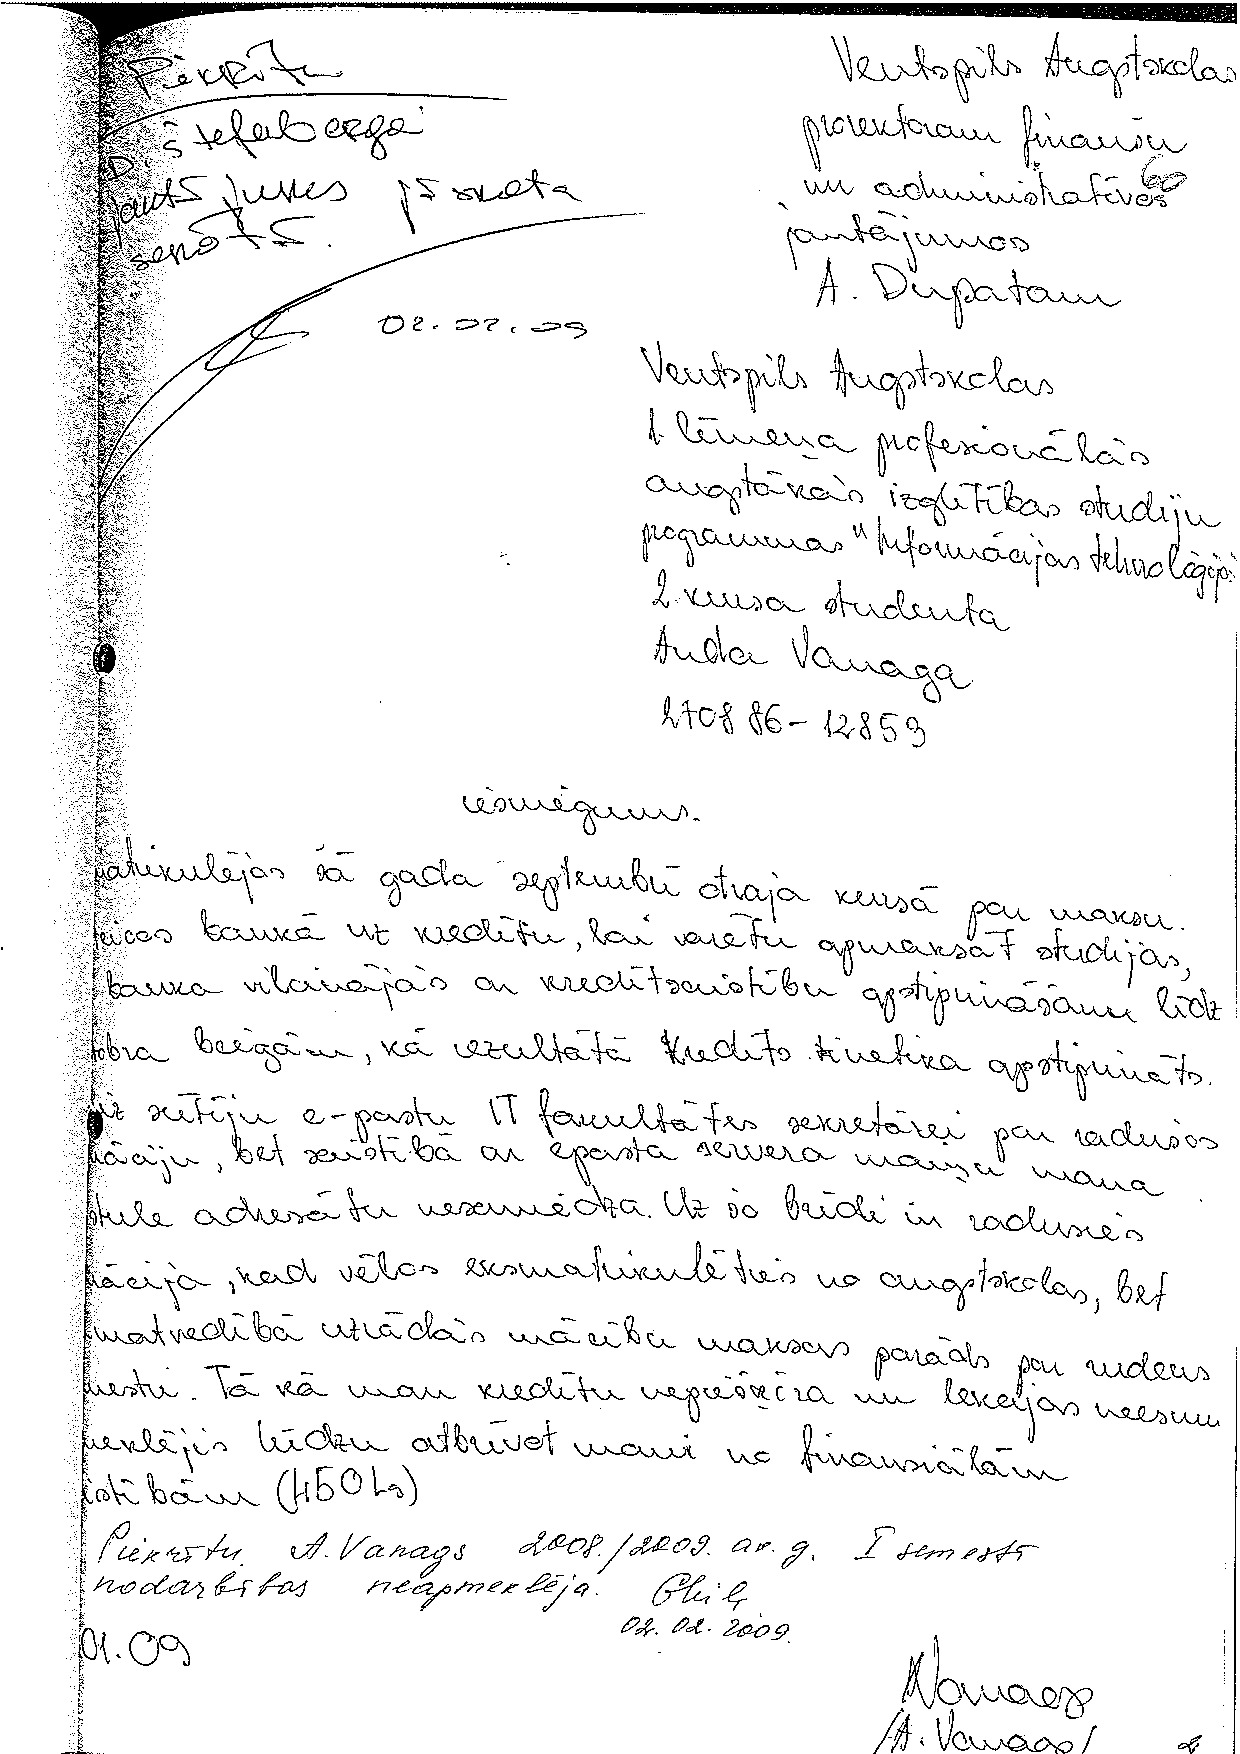 Piekrītu
D. Štefenberga
jautājumus jāskata
senātā.
02.02.09
Ventspils Augstskolas
prorektoram finanšu
un administratīvos
jautājumos
A. Dupatam
Ventspils Augstskolas
1. līmeņa profesionālās
augstākās izglītības studiju
programmas "Informācijas tehnoloģija
2. kursa studenta
Anda Vanaga
270886-12859
iesniegums.
matrikulējos šā gada septembrī otrajā kursā par maksu.
teicos bankā uz kredītu, lai varētu apmaksāt studijas,
banka vilcinājās ar kredītsaistību apstiprināšanu līdz
tobra beigām, kā rezultātā kredīts netika apstiprināts.
sūtīju e-pastu IT fakultātes sekretārei par radušos
uāciju, bet saistībā ar epasta servera maiņu mana
stule adresātu nesasniedza. Uz šo brīdi ir radusies
uācija, kad vēlos eksmatrikulēties no augstskolas, bet
matvedībā uzrādās mācību maksas parāds par rudens
mestri. Tā kā man kredītu nepiešķīra un lekcijas neesmu
meklējis lūdzu atbrīvot mani no finansiālām
istībām (450 Ls)
Piekrītu. A. Vanags 2008./2009. ak. g. I semestrī
nodarbības neapmeklēja.
02.02.2009.
01.09
/A. Vanags/